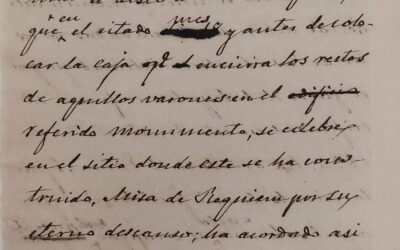 en mes
que el citado y antes de colo-
car la caja qe encierra los restos
de aquellos varones en el edificio
referido monumento, se celebre
en el sitio donde este se ha cons-
truido, Misa de Requiem por su
eterno descanso; ha acordado asi